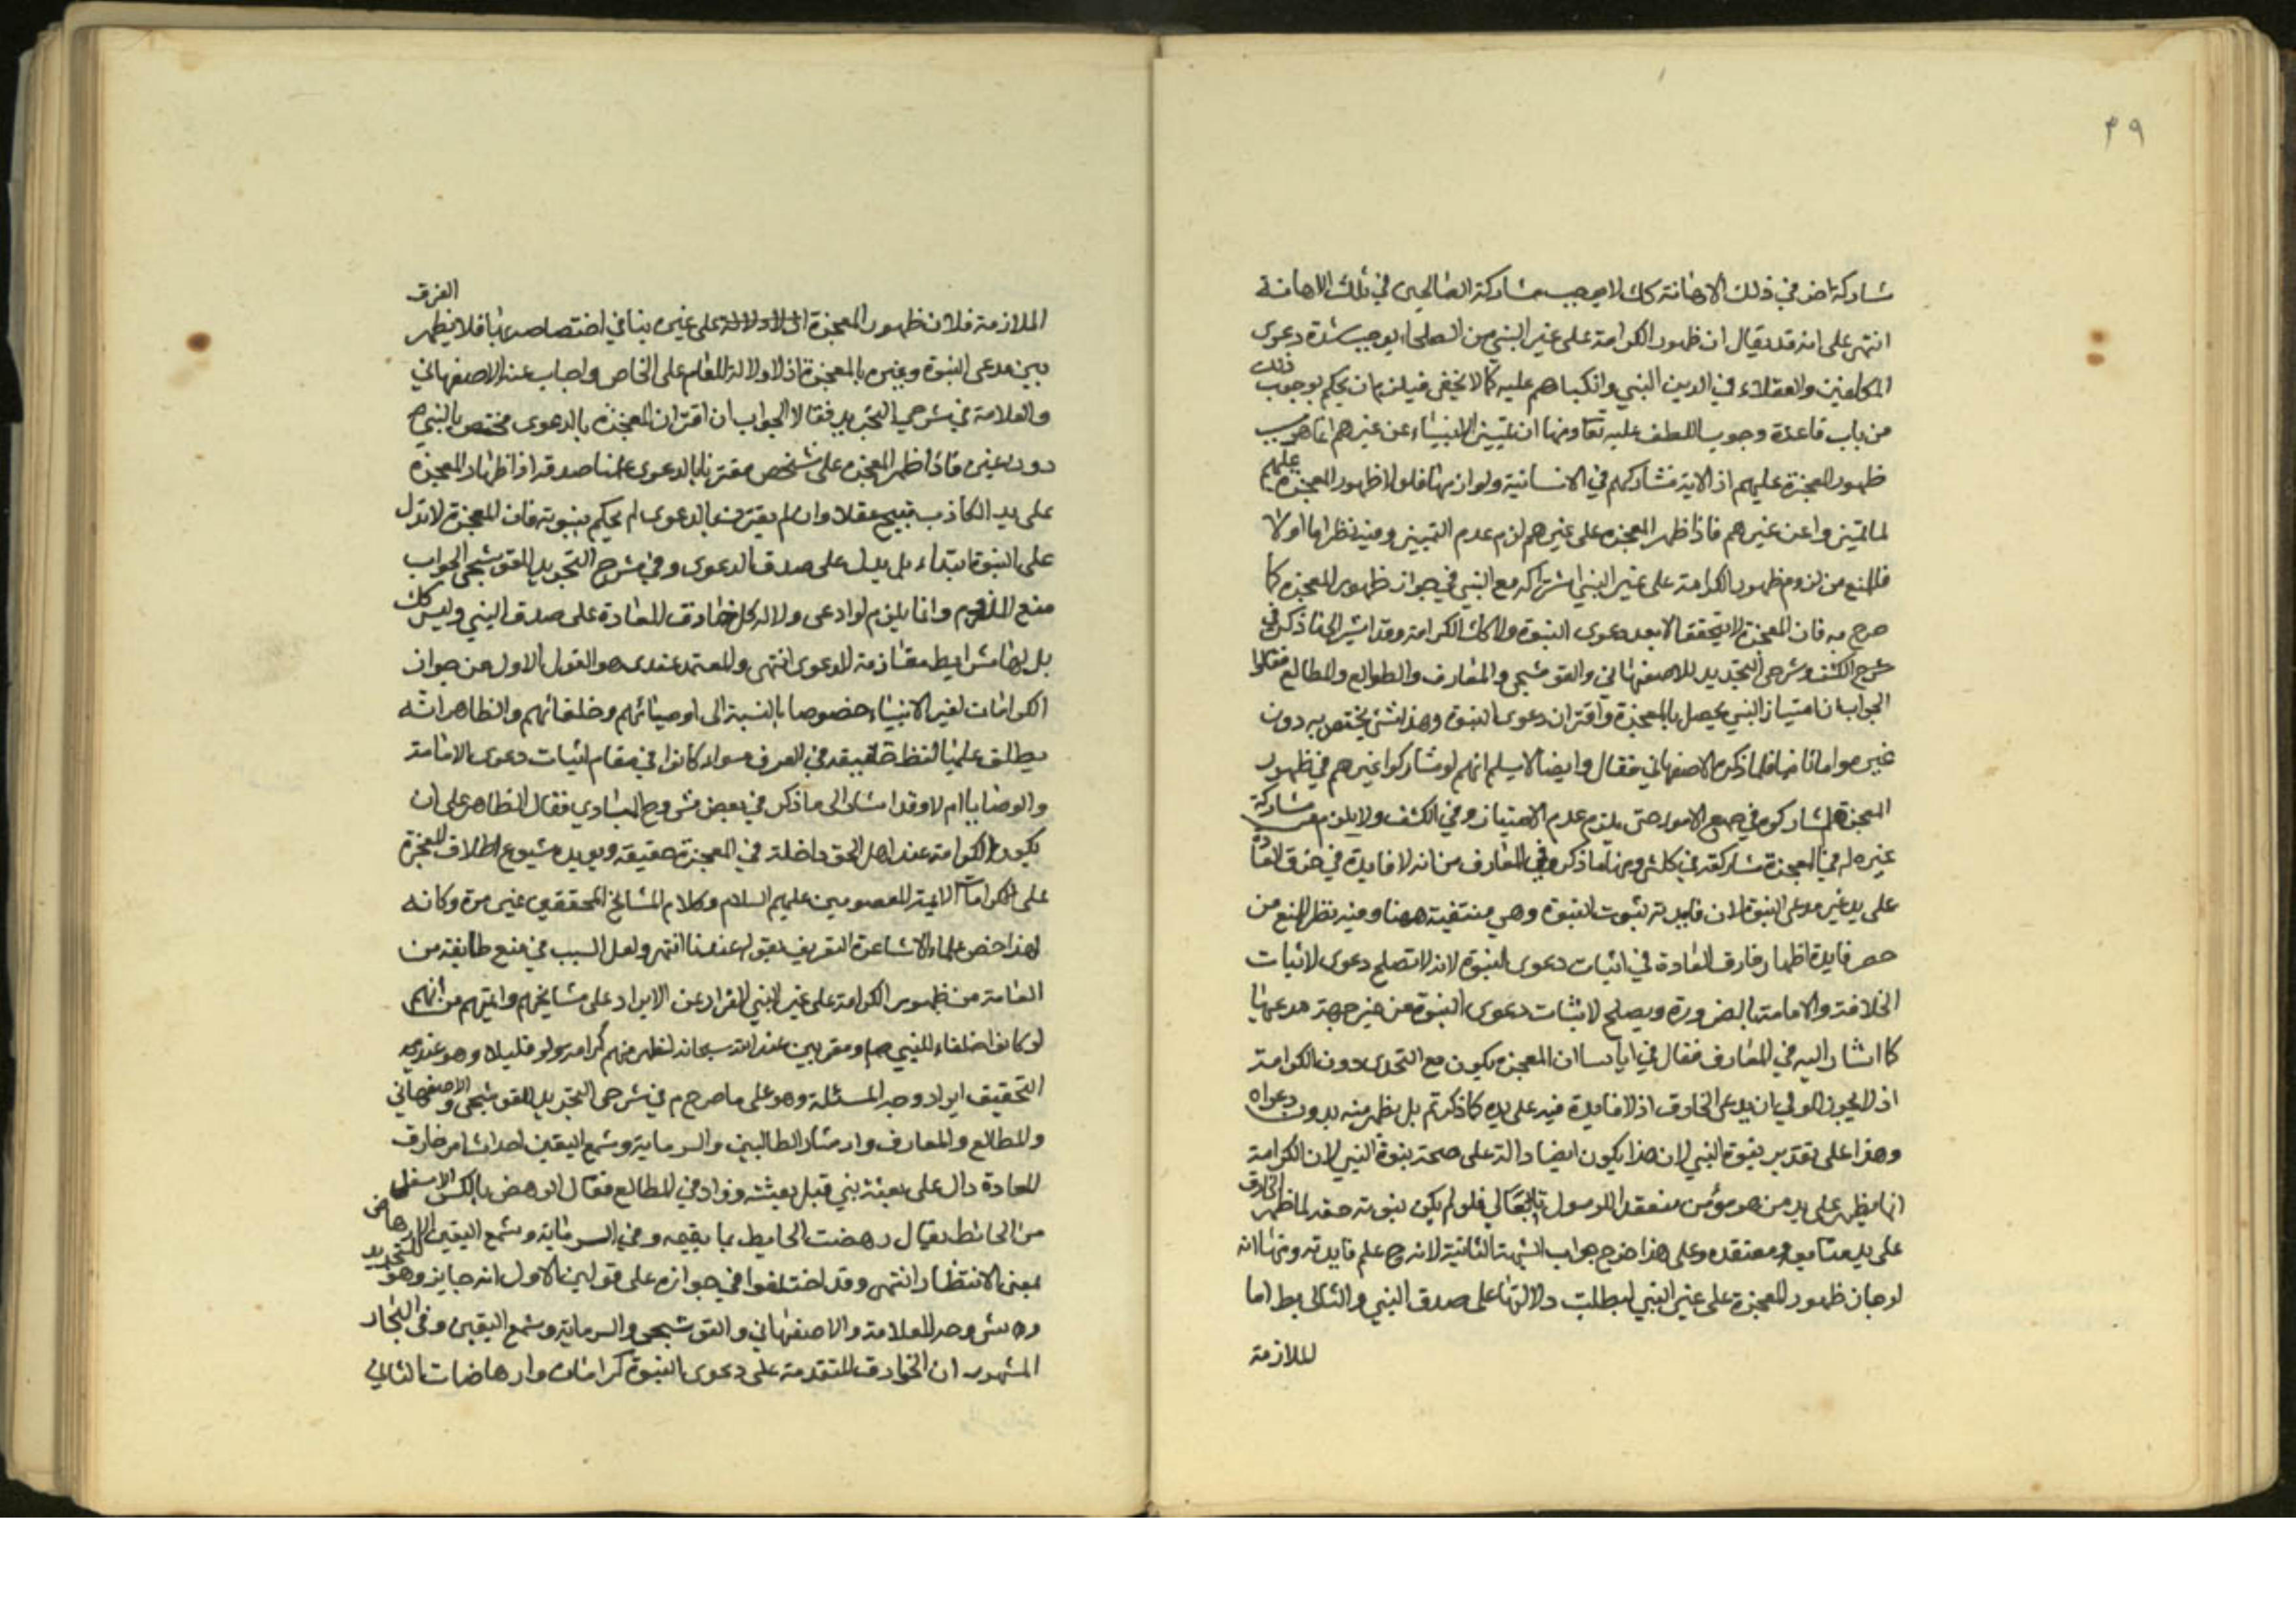 ٣٩
شاركة اخر في ذلك الاهانة كك لا يوجب مشاركة الصالحين في تلك الاهانة
انتهى على انه قد يقال ان ظهور الكرامة على غير النبي من الصلحاء يوجب شدة دعوى
المكلفين والعقلاء في الدين النبي وانكبابهم عليه كما لا يخفى فيلزم ان يحكم بوجوب ذلك
من باب قاعدة وجوب اللطف عليه تعالى ومنها ان تمييز الانبياء عن غيرهم انما هو بسبب
ظهور المعجزة عليهم اذ الاية تشاركهم في الانسانية ولوازمها فلولا ظهور المعجزة عليهم
لما تميزوا عن غيرهم فاذا ظهر المعجزة على غيرهم لزم عدم التمييز وفيه نظر اما اولا
فالمنع من لزوم ظهور الكرامة على غير النبي اشتراكه مع النبي في جواز ظهور المعجزة كما
صرح به فان المعجزة لا يتحقق الا بعد دعوى النبوة ولا كك الكرامة وقد اشير الى ما ذكر في
شرح الكشف وشرحي التجريد للاصفهاني والقوشجي والمعارف والطوالع والمطالع فقالوا
الجواب ان امتياز النبي يحصل بالمعجزة واقتران دعوى النبوة وهذا شئ يختص به دون
غيره واما ثانيا فلما ذكره الاصفهاني فقال وايضا لا يسلم انهم لو شاركوا غيرهم في ظهور
المعجزة لشاركوه في جميع الامور حتى يلزم عدم الامتياز وفي الكشف ولا يلزم من مشاركة
غيره له في المعجزة مشاركته في كل شئ ومنها ما ذكره في المعارف من انه لا فايدة في خرق العادة
على يد غير مدعى النبوة لان فايدته ثبوت النبوة وهي منتفية ههنا وفيه نظر للمنع من
حصر فايدة اظهار خارق العادة في اثبات دعوى النبوة لانه لا تصلح دعوى لاثبات
الخلافة والامامة بالضرورة ويصلح لاثبات دعوى النبوة من غير جهة مدعيها
كما اشار اليه في المعارف فقال في ان المعجزة يكون مع التحدى دون الكرامة
اذ لا يجوز للولي ان يدعى الخارق اذ لا فايدة فيه على يده كما ذكرتم بل يظهر منه بدون دعواه
وهذا على تقدير نبوة النبي لان هذا يكون ايضا دالة على صحة نبوة النبي لان الكرامة
انما يظهر على يد من هو مؤمن منعقد للرسول فلو لم يكن نبوته حقة لما ظهر الخارق
على يد متابعه ومعتقده وعلى هذا خرج جواب الشبهة الثانية لانه ح علم فايدته ومنها انه
لو جاز ظهور المعجزة على غير النبي لبطلت دلالتها على صدق النبي والتالي بط اما
الملازمة
الملازمة فلان ظهور المعجزة على غيره ينافي اختصاصه بها فلا يظهر الفرق
بين مدعى النبوة وغيره بالمعجزة اذ لا دلالة للعام على الخاص واجاب عنه الاصفهاني
والعلامة في شرحي التجريد فقالا الجواب ان اقتران المعجزة بالدعوى مختص بالنبي ص
دون غيره فاذا اظهر المعجزة على شخص مقترنا بالدعوى علمنا صدقه اذ اظهار المعجزة
على يد الكاذب قبيح عقلا وان لم يقترن بالدعوى لم يحكم بنبوته فان المعجزة لا تدل
على النبوة ابتداء بل يدل على صدق الدعوى وفي شرح التجريد للقوشجي الجواب
منع اللزوم وانما يلزم لو ادعى دلالة كل خارق للعادة على صدق النبي وليس كك
بل لها شرايط مقارنة للدعوى انتهى والمعتمد عندى هو القول الاول من جواز
الكرامات لغير الانبياء خصوصا بالنسبة الى اوصيائهم وخلفائهم والظاهر انه
يطلق عليها لفظ حقيقة في العرف سواء كانوا في مقام اثبات دعوى الامامة
والوصايا ام لا وقد اشار الى ما ذكر في بعض شروح المبادي فقال الظاهر على ان
يكون الكرامة عند اهل الحق داخلة في المعجزة حقيقة ويويده شيوع اطلاق المعجزة
على كرامات الائمة المعصومين عليهم السلام وكلام المشايخ المحققين غير مرة وكانه
لهذا خص علماء الاشاعرة التعريف بقوله عندنا انتهى ولعل السبب في منع طايفة من
العامة من ظهور الكرامة على غير النبي الفرار عن الايراد على مشايخهم وائمتهم من انهم
لو كانوا خلفاء للنبي ص ومقربين عند الله سبحانه لظهر منهم كرامة ولو قليلا وهو
التحقيق ايراد وجه المسئلة وهو على ما صرح م في شرحي التجريد للقوشجي والاصفهاني
والمطالع والمعارف وارشاد الطالبين والسرماية وشمع اليقين احداث امر خارق
للعادة دال على بعثة نبي قبل بعثته وزاد في المطالع فقال الرهص بالكسر الاسفل
من الحائط يقال رهصت الحايط بما يقيمه وفي السرماية وشمع اليقين الارهاص
بمعنى الانتظار انتهى وقد اختلفوا في جوازه على قولين الاول انه جايز وهو للتجريد
وشروحه للعلامة والاصفهاني والقوشجي والسرماية وشمع اليقين وفي البحار
المشهور ان الخوارق المتقدمة على دعوى النبوة كرامات وارهاصات الثاني